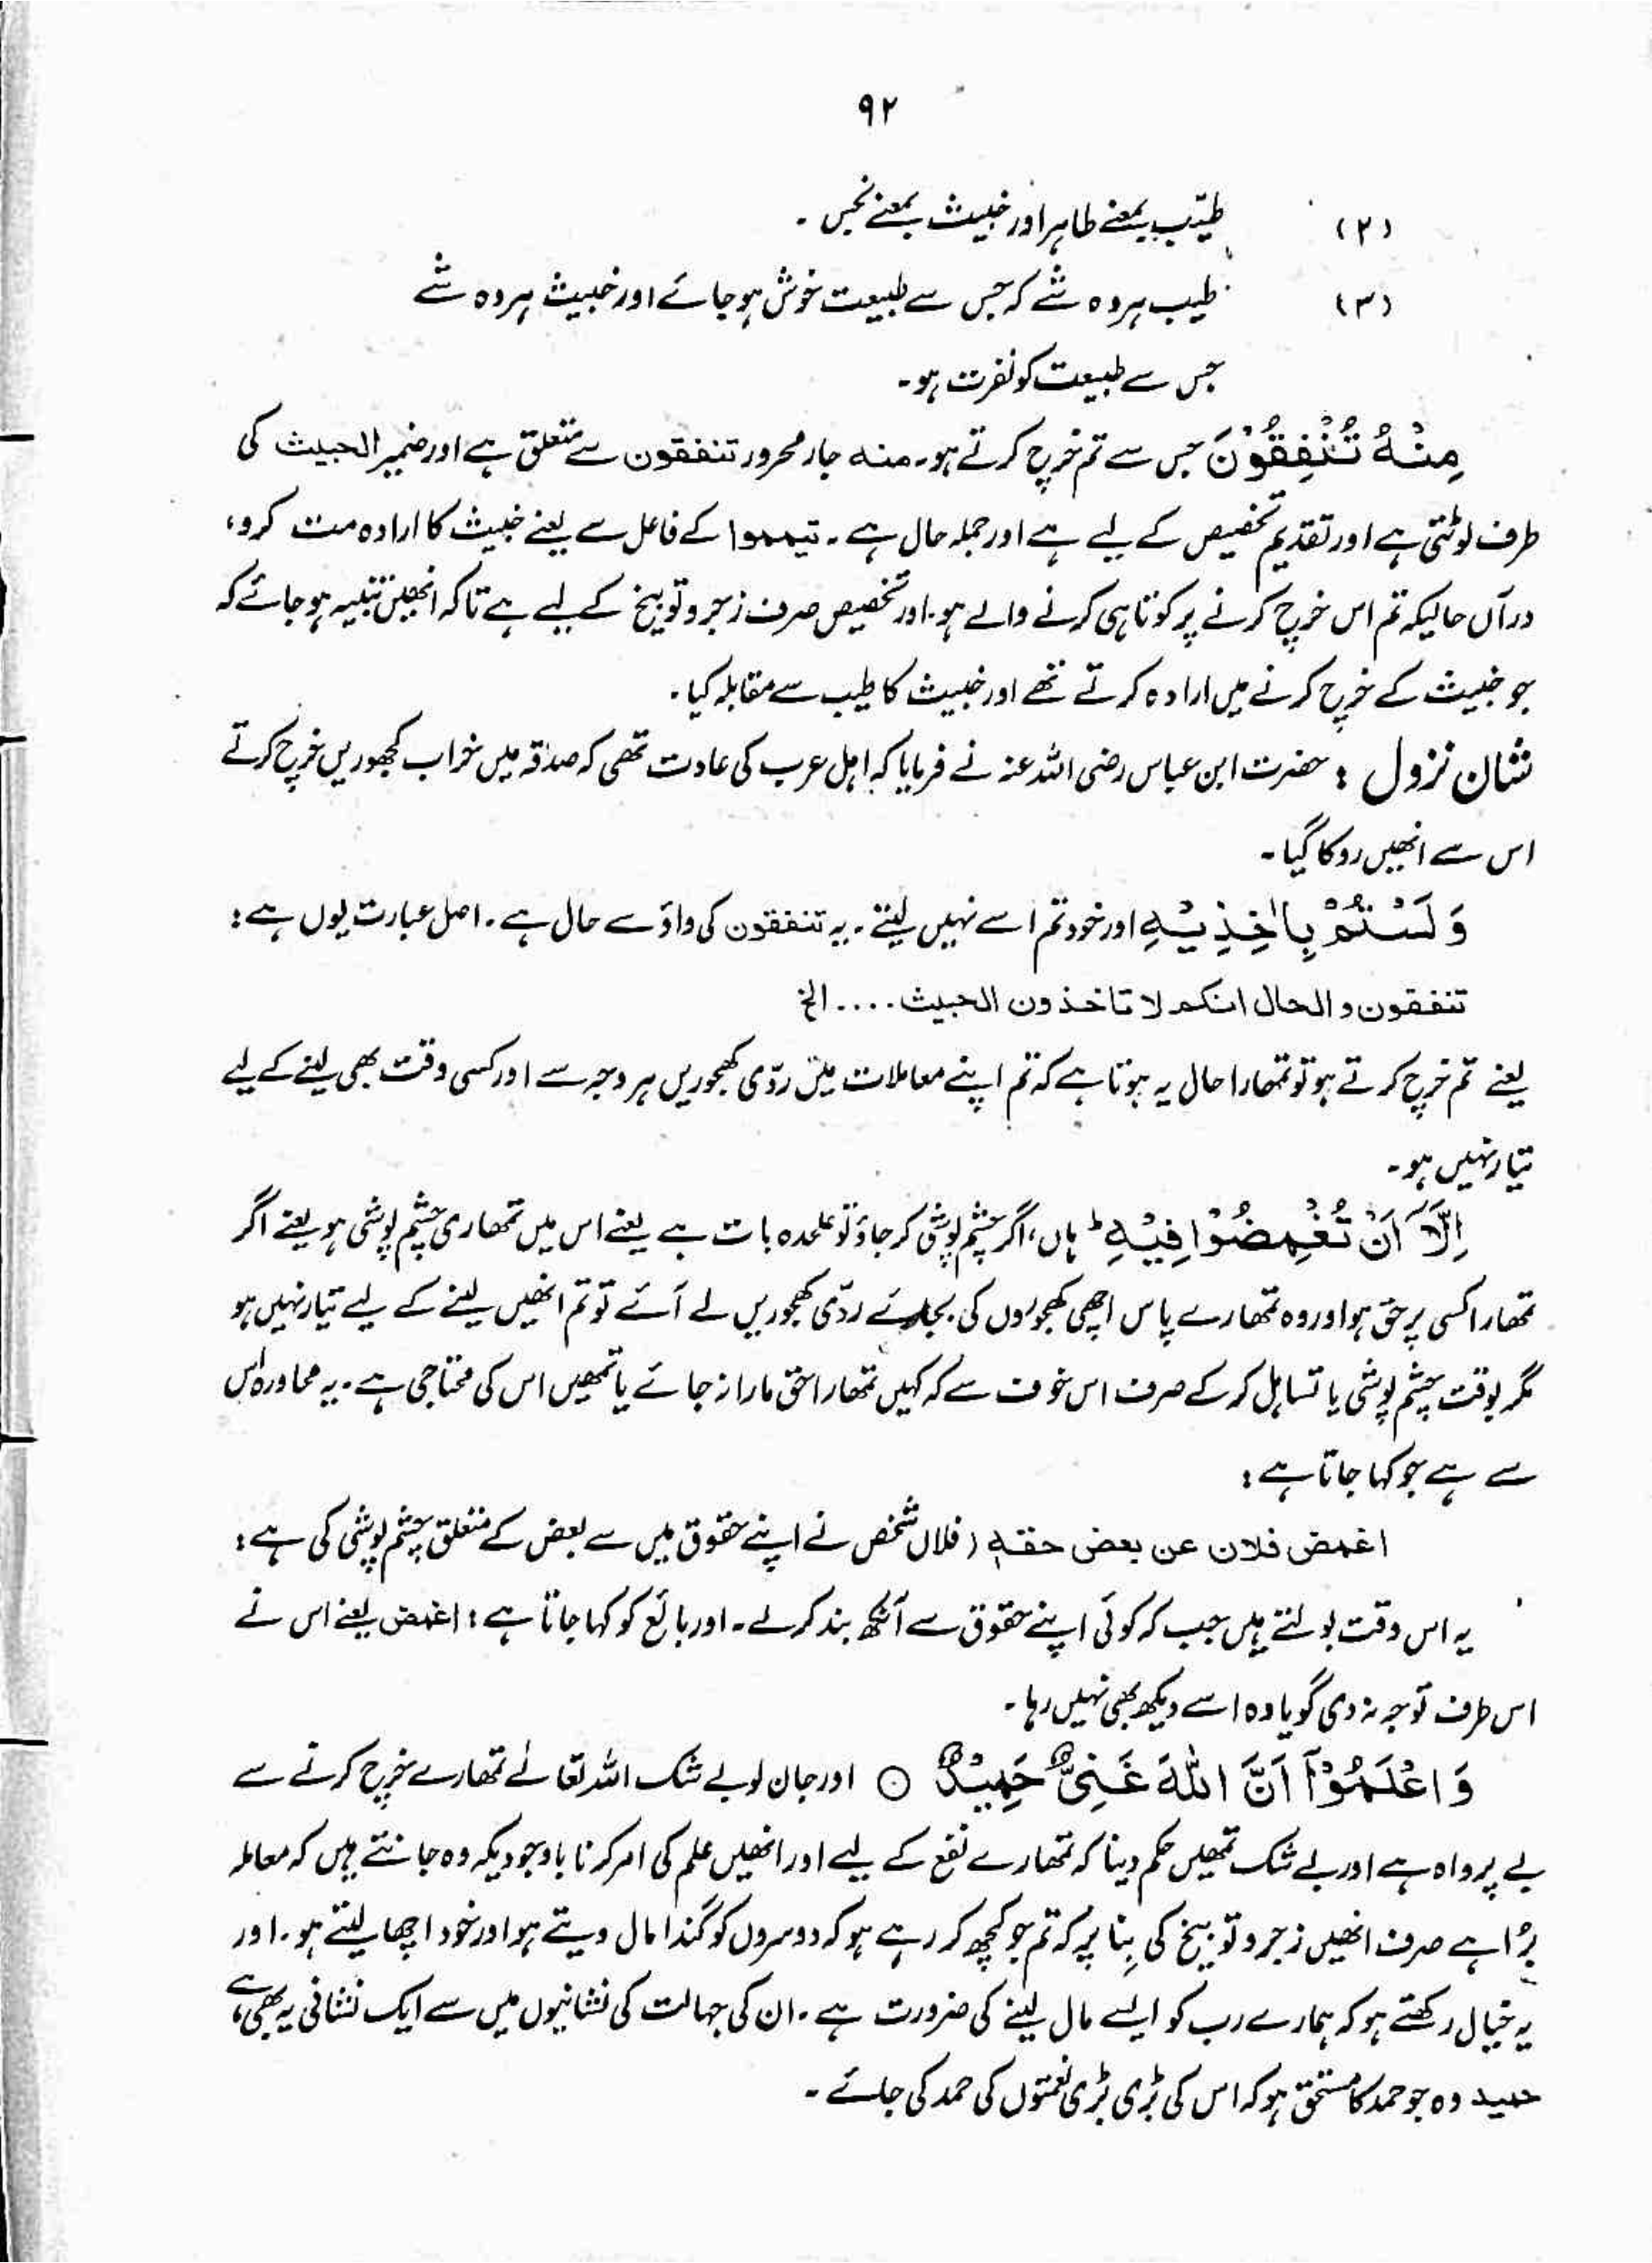 ۹۲
(۲) طیّب بمعنے طاہر اور خبیث بمعنے نجس ۔
(۳) طیب ہر وہ شے کہ جس سے طبیعت خوش ہو جائے اور خبیث ہر وہ شے
جس سے طبیعت کو نفرت ہو۔
مِنْہُ تُنْفِقُوْنَ جس سے تم خرچ کرتے ہو۔ منہ جار مجرور تنفقون سے متعلق ہے اور ضمیر الخبیث کی
طرف لوٹتی ہے اور تقدیم تخصیص کے لیے ہے اور جملہ حال ہے ۔ تیمموا کے فاعل سے یعنے خبیث کا ارادہ مت کرو،
درآں حالیکہ تم اس خرچ کرنے پر کوتاہی کرنے والے ہو۔ اور تخصیص صرف زجر و توبیخ کے لیے ہے تاکہ انھیں تنبیہ ہو جائے کہ
جو خبیث کے خرچ کرنے میں ارادہ کرتے تھے اور خبیث کا طیب سے مقابلہ کیا ۔
شان نزول : حضرت ابن عباس رضی اللہ عنہ نے فرمایا کہ اہل عرب کی عادت تھی کہ صدقہ میں خراب کھجوریں خرچ کرتے
اس سے انھیں روکا گیا ۔
وَلَسْتُمْ بِاٰخِذِیْہِ اور خود تم اسے نہیں لیتے ۔ یہ تنفقون کی واؤ سے حال ہے ۔ اصل عبارت یوں ہے :
تنفقون و الحال انکم لا تاخذون الخبیث .... الخ
یعنے تم خرچ کرتے ہو تو تمھارا حال یہ ہوتا ہے کہ تم اپنے معاملات میں ردّی کھجوریں ہر وجہ سے اور کسی وقت بھی لینے کے لیے
تیار نہیں ہو ۔
اِلَّآ اَنْ تُغْمِضُوْا فِیْہِ ؕ ہاں، اگر چشم پوشی کر جاؤ تو علٰحدہ بات ہے یعنے اس میں تمھاری چشم پوشی ہو یعنے اگر
تمھارا کسی پر حق ہو اور وہ تمھارے پاس اچھی کھجوروں کی بجائے ردّی کھجوریں لے آئے تو تم انھیں لینے کے لیے تیار نہیں ہو
مگر بوقت چشم پوشی یا تساہل کر کے صرف اس خوف سے کہ کہیں تمھارا حق مارا نہ جائے یا تمھیں اس کی محتاجی ہے ۔ یہ محاورہ اس
سے ہے جو کہا جاتا ہے :
اغمض فلان عن بعض حقہ ( فلاں شخص نے اپنے حقوق میں سے بعض کے متعلق چشم پوشی کی ہے :
یہ اس وقت بولتے ہیں جب کہ کوئی اپنے حقوق سے آنکھ بند کر لے ۔ اور بائع کو کہا جاتا ہے : اغمض یعنے اس نے
اس طرف توجہ نہ دی گویا وہ اسے دیکھ بھی نہیں رہا ۔
وَاعْلَمُوْٓا اَنَّ اللّٰہَ غَنِیٌّ حَمِیْدٌ ○ اور جان لو بے شک اللہ تعالےٰ تمھارے خرچ کرنے سے
بے پرواہ ہے اور بے شک تمھیں حکم دینا کہ تمھارے نفع کے لیے اور انھیں علم کی امر کرنا باوجودیکہ وہ جانتے ہیں کہ معاملہ
بُرا ہے صرف انھیں زجر و توبیخ کی بِنا پر کہ تم جو کچھ کر رہے ہو کہ دوسروں کو گندا مال دیتے ہو اور خود اچھا لیتے ہو ۔ اور
یہ خیال رکھتے ہو کہ ہمارے رب کو ایسے مال لینے کی ضرورت ہے ۔ ان کی جہالت کی نشانیوں میں سے ایک نشانی یہ بھی ہے،
حمید وہ جو حمد کا مستحق ہو کہ اس کی بڑی بڑی نعمتوں کی حمد کی جائے ۔